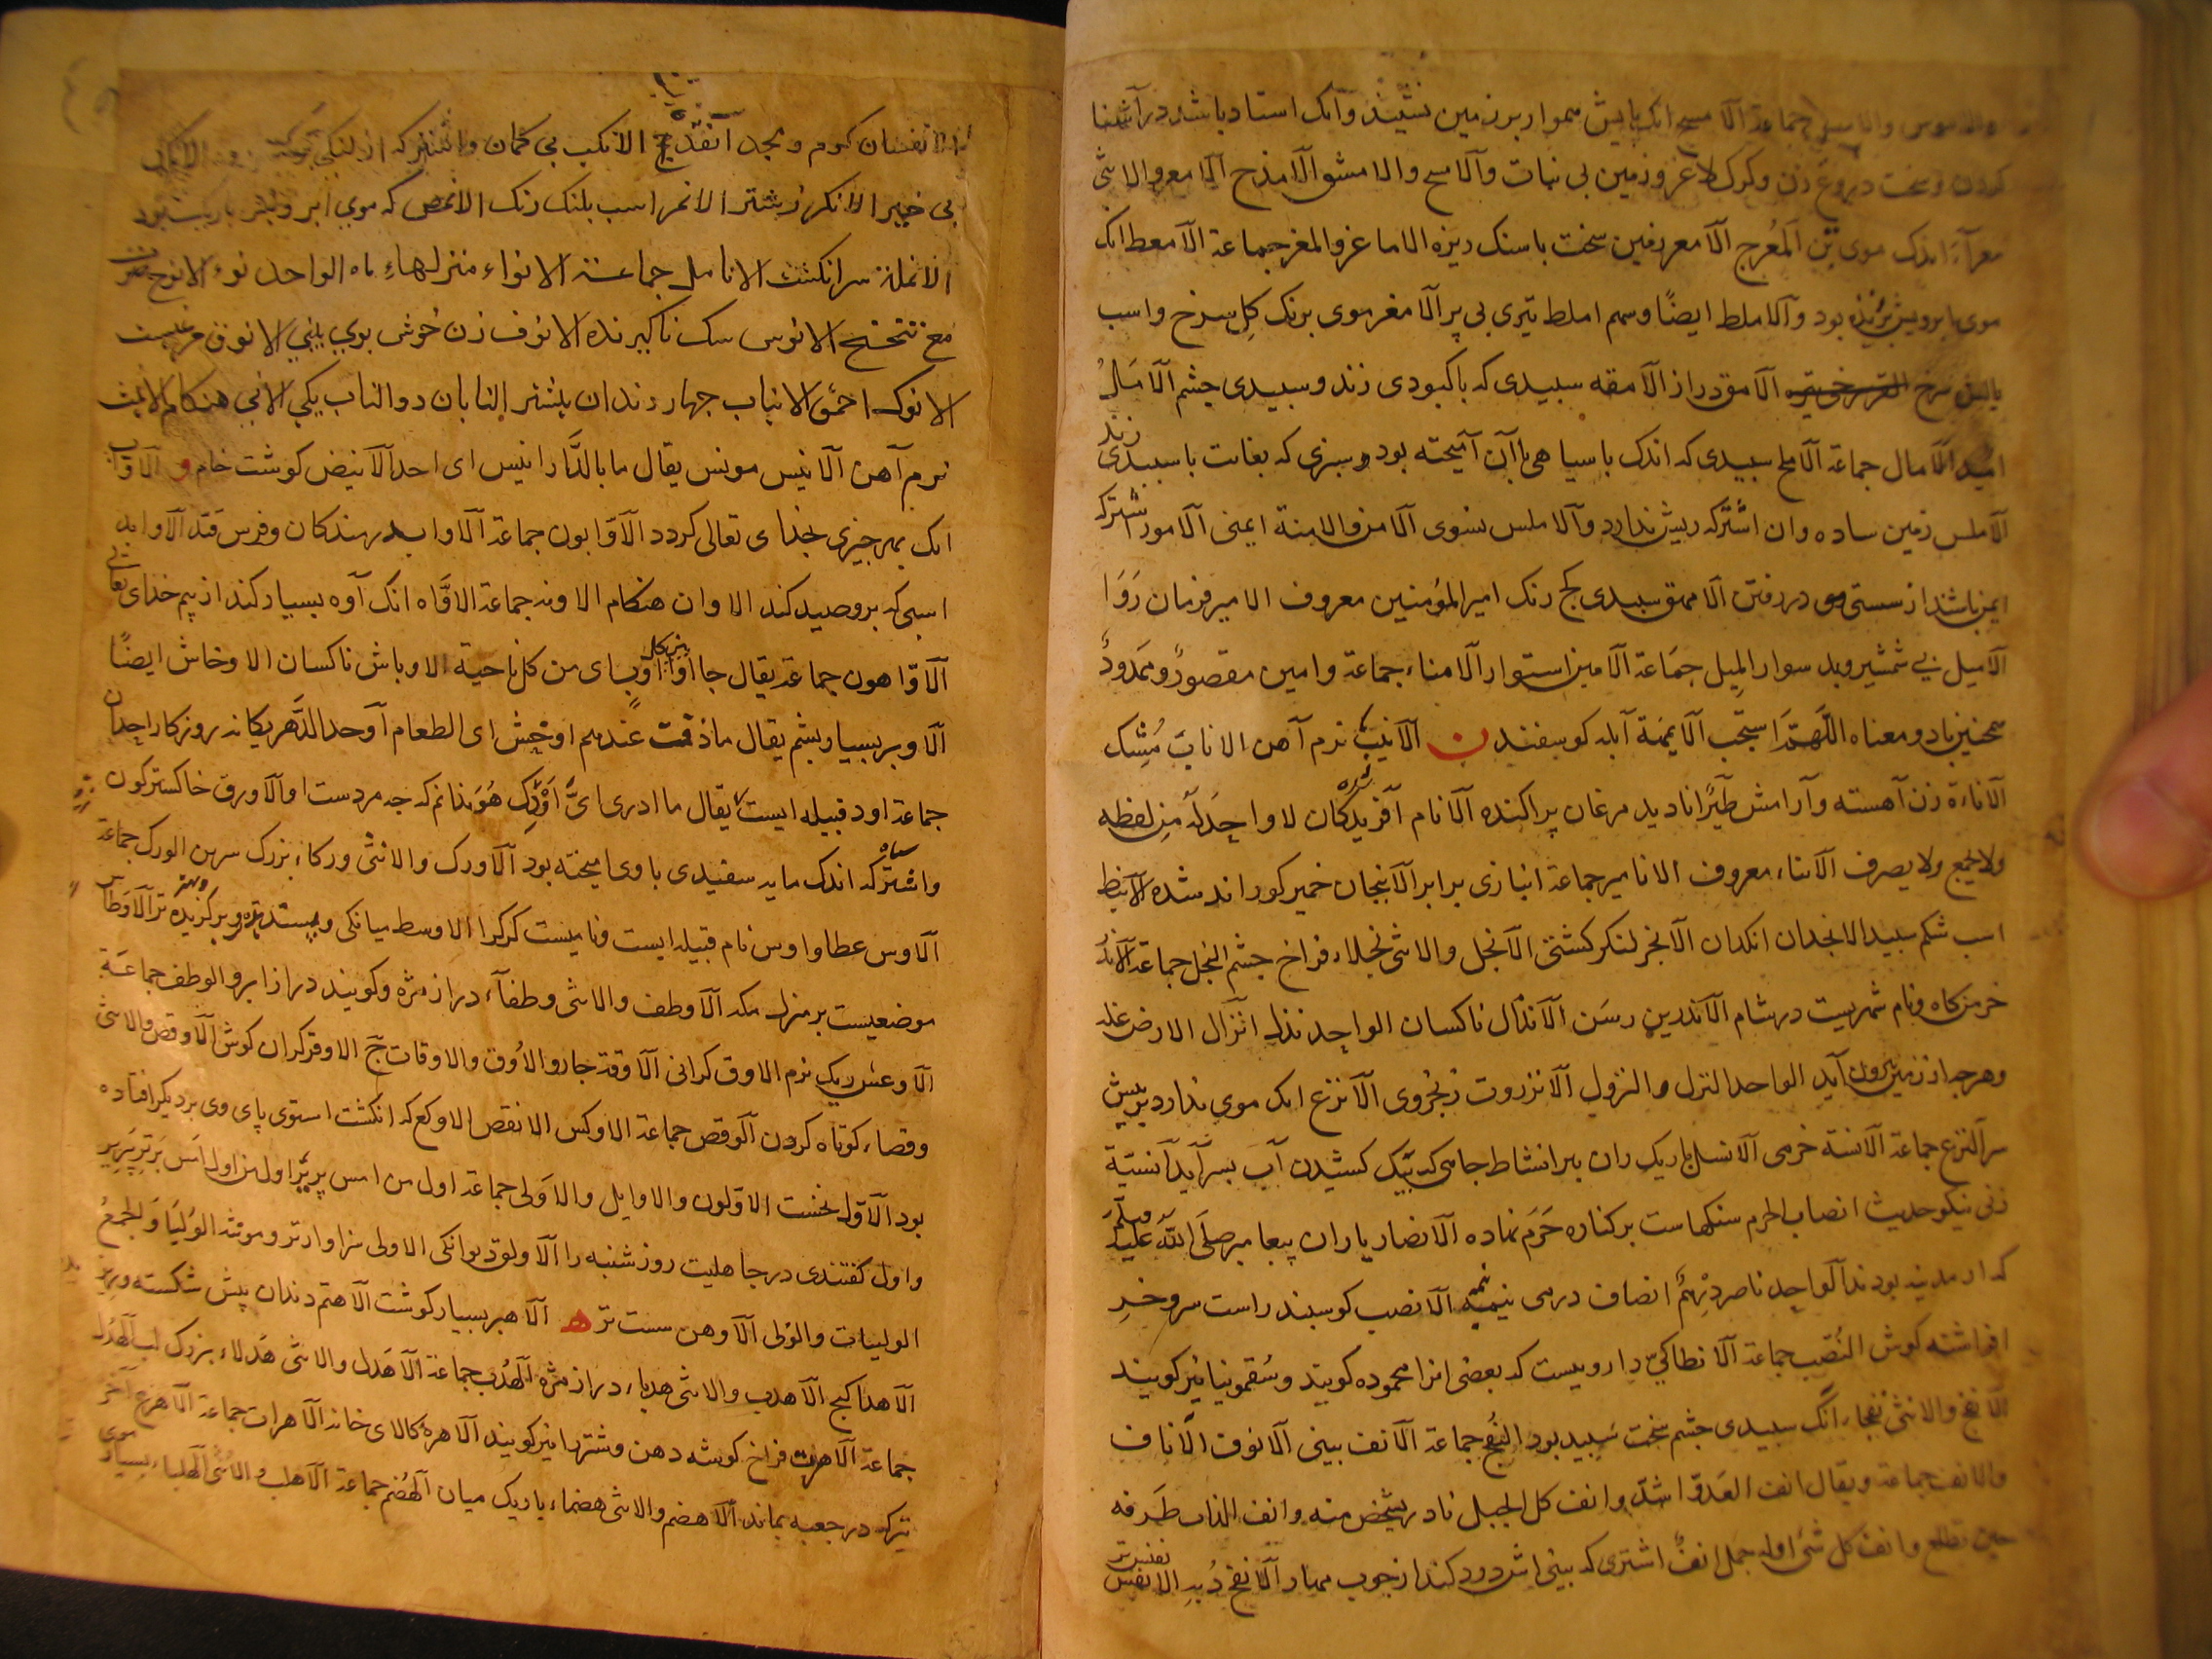 جماعة الامسح انک پایش هموار بر زمین نشیند و آنک استاد باشد در آشنا
کردن و سخت دروغ زن و کرک لاغر و زمین بی نبات و آلامسح والامشق الامذح الامعر والانثی
معرآء اندک موی تن المعرج الامعز زمین سخت با سنک ریزه الاماعز والمعز جماعة الامعط انک
موی با برویش ریزیده بود و آلاملط ایضًا و سهم املط تیری بی پر الامغر موی برنک کل سرخ و اسب
سرخ الامق دراز الامقه سبیدی که با کبودی زند و سبیدی چشم الامل
امید الامال جماعة الاملح سبیدی که اندک با سیاهی با آن آمیخته بود و سبزی که بغایت با سبیدی زند
الاملس زمین ساده و ان اشترکه ریش ندارد و آلاملس نسوی الامن والامنة ایمنی الامور اشترکه
ایمن باشند از سستی در رفتن الامهق سبیدی کج رنک امیر المؤمنین معروف الامیر فرمان روا
الامیل بی شمشیر و بد سوار المیل جماعة الامین استوار الامناء جماعة وامین مقصورٌ و ممدودٌ
همچنین باد و معناه اللهم استجب الامیهة آبله کوسفند ن الانیب نرم آهن الاناب مشک
الاناءة زن آهسته و آرامش طیرًا انادید مرغان پراکنده الانام آفریدکان لا واحد له من لفظه
ولا یجمع ولا یصرف الانباء معروف الانامیر جماعة انبازی برابر الانبجان خمیر کور اند شده الانبط
اسب شکم سبید الانجدان انکدان الانجر لنکر کشتی الانجل والانثی نجلاء فراخ چشم النجل جماعة الاندر
خرمن کاه و نام شهریست در شام الاندرین رسن الانذال ناکسان الواحد نذل انزال الارض غله
و هرچه از زمین بیرون آید الواحد النزل و النزول الانزروت زنجروی الانزع انک موی ندارد بر پیش
سر النزع جماعة الانسة خرمی الانسل باریک ران بیر انشاط چاهی که بیک کشیدن آب بسر آید آنسیة
زنی نیکو حدیث انصاب الحرم سنکهاست بر کناره حرم نهاده الانصار یاران پیغامبر صلی الله علیه و سلم
که از مدینه بودند الواحد ناصر درهم انصاف درمی نیمه الانصب کوسبند راست سرو خر
افراشته کوش النصب جماعة الانطاکی داروییست که بعضی انرا محموده کویند و سقمونیا نیز کویند
والانثی انک سبیدی چشم سخت سبید بود جماعة الانف بینی الانوف الاناف
والانف جماعة و یقال انف العدو اشده وانف کل الجبل نادر یشخص منه وانف الناب طرفه
حین تطلع وانف کل شئ اوله جمل انفٌ اشتری که بینی اش درد کند از چوب مهار الانفح دُبر الانفس نفیس تر
الانفسان کوم و مجد انقدج الانکب بی کمان و اشتر که از لنکی
بی خیر الانکر زشتر الانمر اسب بلنک رنک الانمص که موی ابر و یشر باریک بود
الانملة سر انکشت الانامل جماعة الانواء منزلهاءِ ماه الواحد نوء الانوح
تنحنح الانوس سک ناکیرنده الانوف زن خوش بوی بینی الانوق مرغیست
الانوک احمق الانیاب چهار دندان بیشتر النابان دو الناب یکی الانی هنکام الانیث
نرم آهن الانیس مونس یقال ما بالدار انیس ای احد الانیض کوشت خام و الاواب
انک بهر چیزی بخدای تعالی کردد الاوابون جماعة الاوابد رمندکان و فرس قید الاوابد
اسبی که بر وصید کند الاوان هنکام الاونه جماعة الاواه انک آوه بسیار کند از بیم خدای تعالی
الاواهون جماعة یقال جاءوا اوبای من کل ناحیة الاوباش ناکسان الاوخاش ایضًا
الاوبر بسیار پشم یقال ما ذقت عندهم اوخش ای الطعام آوحد الدهر یکانه روزکار احدان
جماعة اود قبیله ایست یقال ما ادری ای اودک هو ندانم که چه مردست او الاورق خاکستر کون
و اشتر که اندک مایه سفیدی با وی امیخته بود الاورک والانثی ورکاء بزرک سرین الورک جماعة
الاوس عطا و اوس نام قبیله ایست و نامیست کرک را الاوسط میانکی و بسندیده و بر کزیده تر الاوطاس
موضعیست بر منزل مکه الاوطف والانثی وطفآء دراز مژه و کویند دراز ابرو الوطف جماعة
الاوعس ریک نرم الاوق کرانی الاوقة جار و الاوق والاوقات ج الاوقر کران کوش الاوقص والانثی
وقصاء کوتاه کردن الوقص جماعة الاوکس الانقص الاوکع که انکشت استوی پای وی بر دیکر افتاده
بود الاول نخست الاولون والاوایل والاولی جماعة اول من امس پریر اول من اول امس برتر پریر
واول کفتندی در جاهلیت روز شنبه را الاولق دیوانکی الاولی سزاوارتر و موئثه الولیا والجمع
الولییات والولی الاوهن سست تر ه الاهبر بسیار کوشت الاهتم دندان پیش شکسته
الاهدا کج الاهدب والانثی هدباء دراز مژه الهدب جماعة الاهدل والانثی هدلاء بزرک لب الهدل
جماعة الاهرت فراخ کوشه دهن و شتر را نیز کویند الاهرة کالای خانه الاهرات جماعة الاهزع آخر
تیرکه در جعبه بماند الاهضم والانثی هضماء باریک میان الهضم جماعة الاهلب والانثی الهلباء بسیار موی